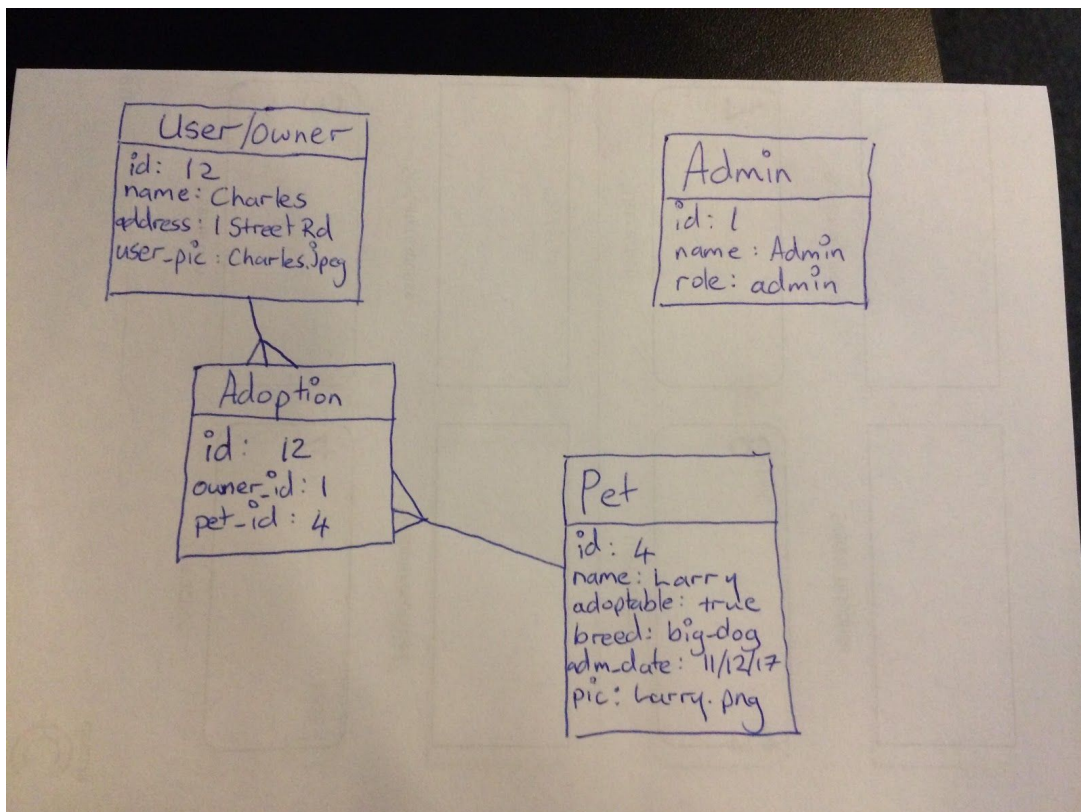 User/owner
id: 12
name: Charles
address: 1 Street Rd
user_pic: Charles.jpeg
Admin
id: 1
name: Admin
role: admin
Adoption
id: 12
owner_id: 1
pet_id: 4
Pet
id: 4
name: Larry
adoptable: true
breed: big-dog
adm_date: 11/12/17
pic: Larry.png